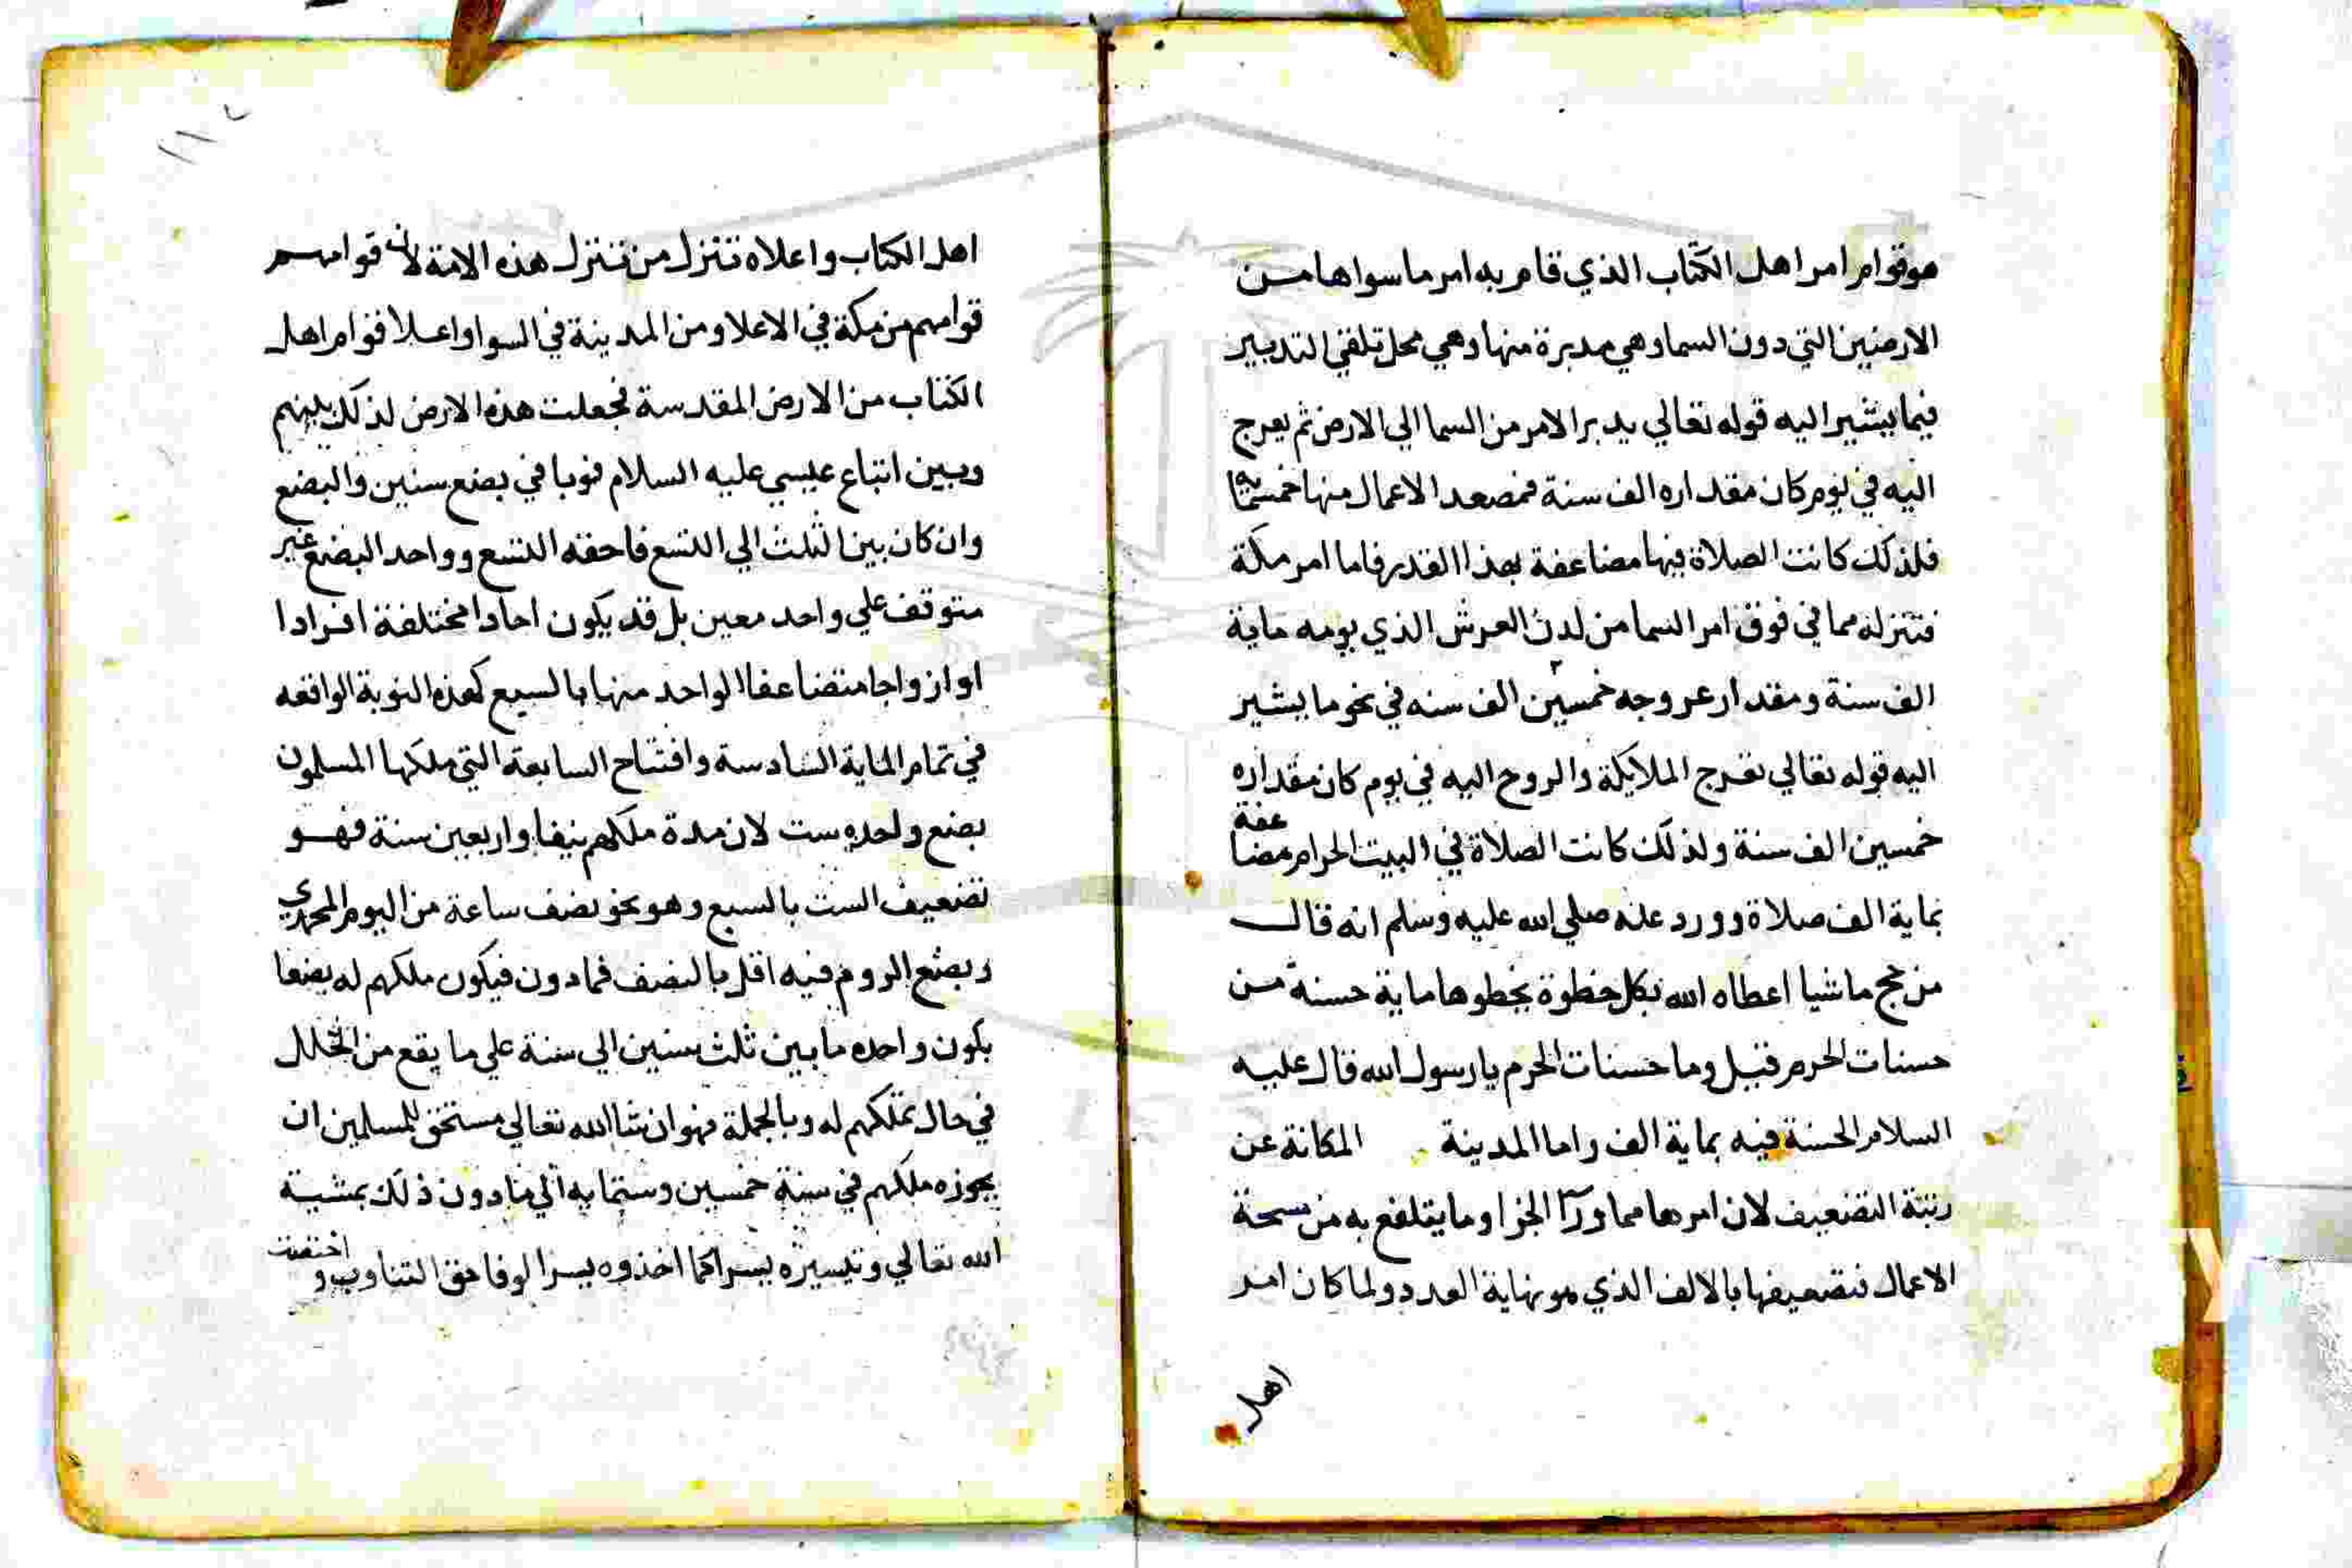 هو قوام امر اهل الكتاب الذي قام به امر ما سواها من
الارضين التي دون السما وهي مدبرة منها وهي محل تلقي التدبير
فيما يشير اليه قوله تعالي يدبر الامر من السما الي الارض ثم يعرج
اليه في يوم كان مقداره الف سنة فمصعد الاعمال منها خمسماية
فلذلك كانت الصلاة فيها مضاعفة بهذا القدر فاما امر مكة
فتنزله مما في فوق امر السما من لدن العرش الذي يومه ماية
الف سنة ومقدار عروجه خمسين الف سنه في نحو ما يشير
اليه قوله تعالي تعرج الملايكة والروح اليه في يوم كان مقداره
خمسين الف سنة ولذلك كانت الصلاة في البيت الحرام مضاعفة
بماية الف صلاة وورد عنه صلي الله عليه وسلم انه قال
من حج ماشيا اعطاه الله بكل خطوة يخطوها ماية حسنة من
حسنات الحرم قيل وما حسنات الحرم يا رسول الله قال عليه
السلام الحسنة فيه بماية الف واما المدينة المكانة عن
رتبة التضعيف لان امرها مما ورآ الجزا وما يتلفع به من سمحة
الاعمال فتضعيفها بالالف الذي هو نهاية العدد ولما كان امر
اهل
١١٢
اهل الكتاب واعلاه تنزل من تنزل هذه الامة لان قوامهم
قوامهم من مكة في الاعلا ومن المدينة في السوا واعلا قوام اهل
الكتاب من الارض المقدسة فجعلت هذه الارض لذلك بينهم
وبين اتباع عيسي عليه السلام نوبا في بضع سنين والبضع
وان كان بين الثلث الي التسع فاحقه التسع وواحد البضع غير
متوقف علي واحد معين بل قد يكون احادا مختلفة افرادا
او ازواجا متضاعفا الواحد منها بالسبع كهذه النوبة الواقعه
في تمام الماية السادسة وافتتاح السابعة التي ملكها المسلمون
بضع واحده ست لان مدة ملكهم نيفا واربعين سنة فهو
تضعيف الست بالسبع وهو نحو نصف ساعة من اليوم المحمدي
وبضع الروم فيه اقل بالنصف فما دون فيكون ملكهم له بضعا
يكون واحده ما بين ثلث سنين الي سنة علي ما يقع من الخلل
في حال تملكهم له وبالجملة فهو ان شا الله تعالي مستحق للمسلمين ان
يحوزه ملكهم في سنة خمسين وستماية الي ما دون ذلك بمشية
الله تعالي وتيسيره يسرا كما اخذوه يسرا لوفا حق التناوب و